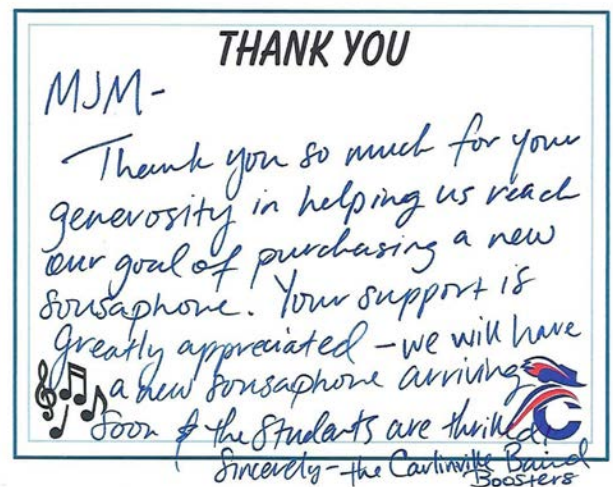 THANK YOU
MJM-
Thank you so much for your
generosity in helping us reach
our goal of purchasing a new
sousaphone. Your support is
greatly appreciated - we will have
a new sousaphone arriving
soon & the students are thrilled!
Sincerely - the Carlinville Band
Boosters
C